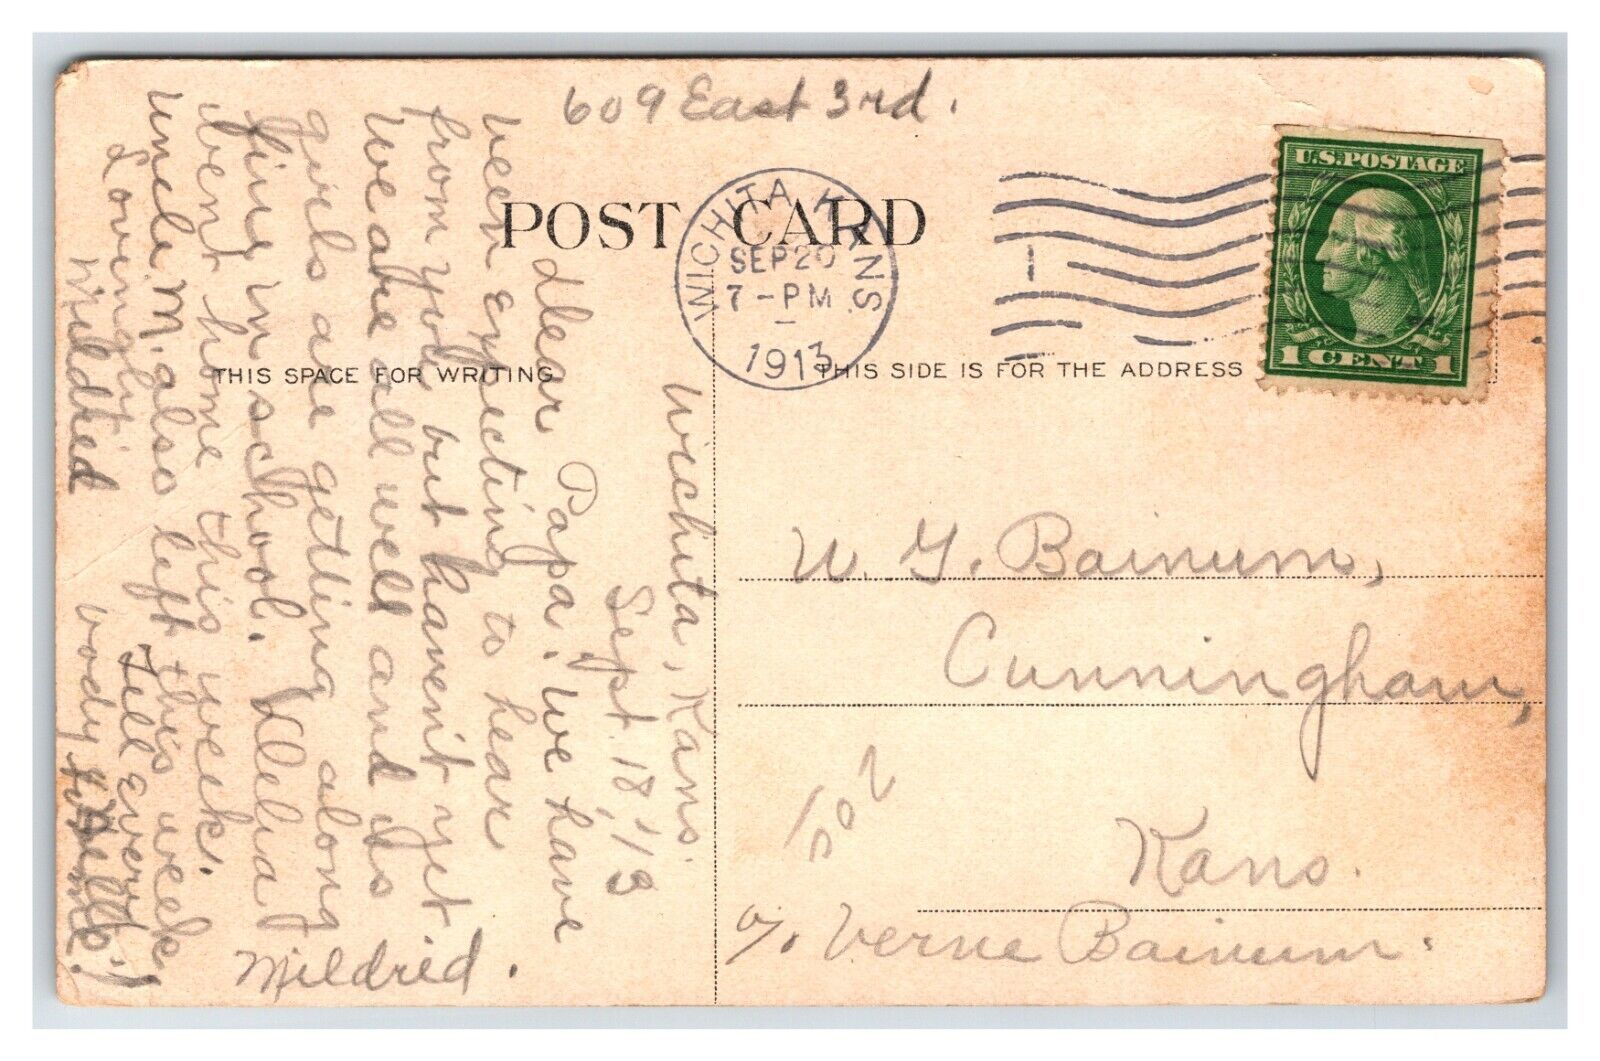 609 East 3rd.
POST CARD
WICHITA KANS.
SEP 20
7-PM
1913
U.S. POSTAGE
1 CENT 1
THIS SPACE FOR WRITING
THIS SIDE IS FOR THE ADDRESS
Wichita, Kans.
Sept. 18, '13
Dear Papa: We have
been expecting to hear
from you but haven't yet
We are all well and
girls are getting along
fine in school.
went home this week.
Uncle M. also left this week
Lovingly Tell every
Mildred body
Mildred.
W. G. Bainum,
Cunningham,
Kans.
c/. Verne Bainum.
502